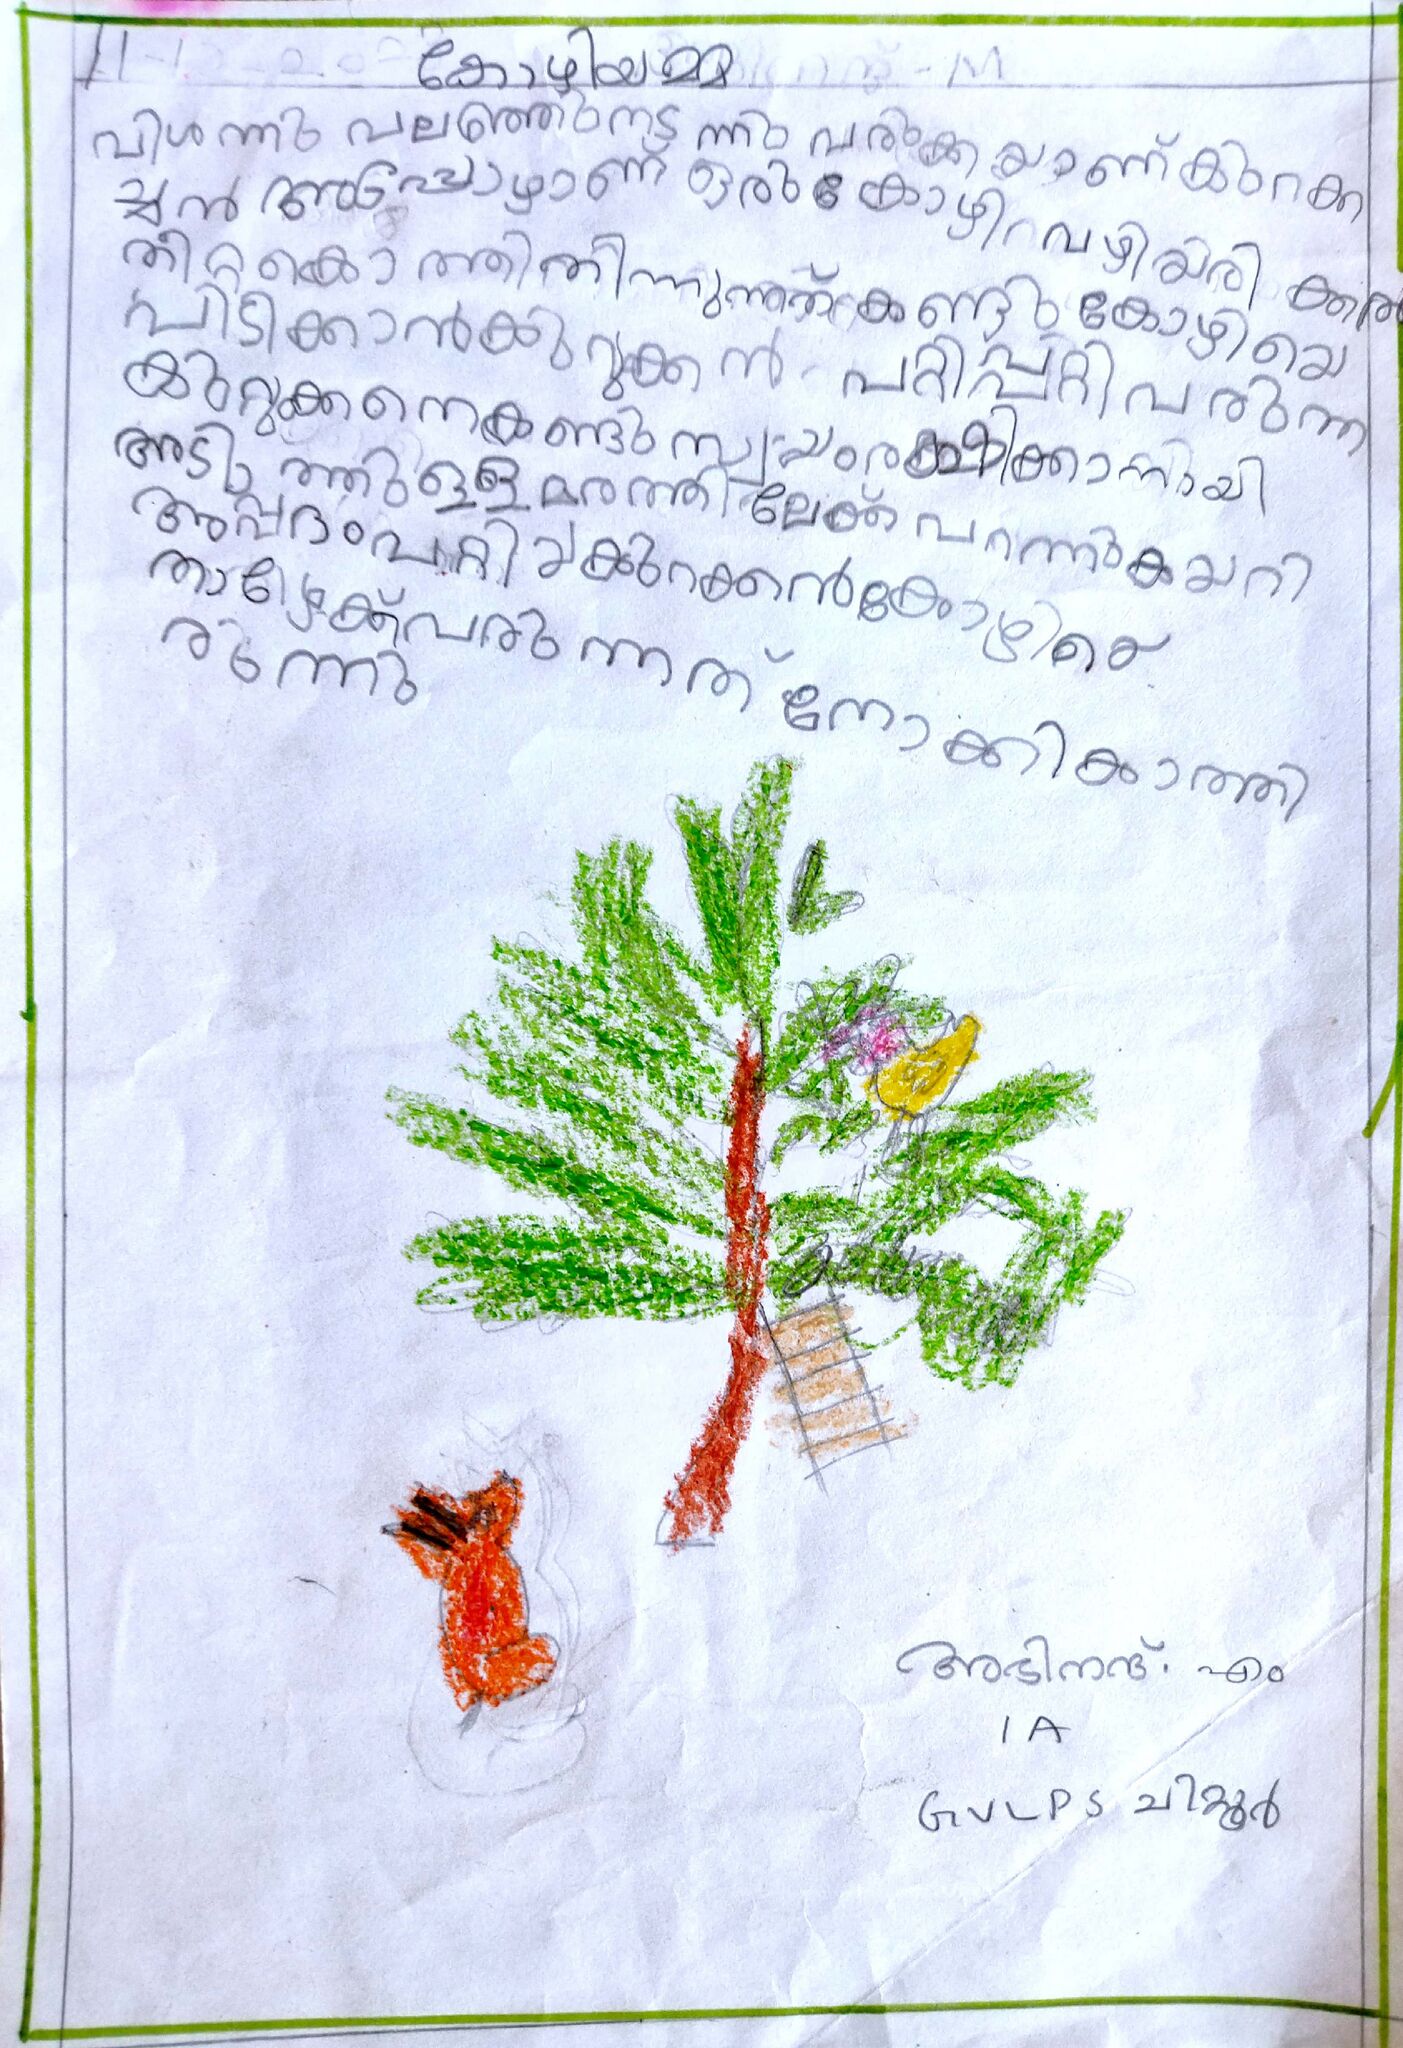 കോഴിയമ്മ
വിശന്നു വലഞ്ഞുനട ന്നു വരുകയാണ് കുറക്ക
ച്ചൻ അപ്പോഴാണ് ഒരു കോഴി വഴിയരി കത്ത്
തീറ്റകൊത്തിതിന്നുന്നത് കണ്ടു കോഴിയെ
പിടിക്കാൻകുറുക്കൻ പറ്റിപ്പറ്റിവരുന്ന
കുറുക്കനെകണ്ടു സ്വയംരക്ഷിക്കാനായി
അടുത്തുള്ള മരത്തി ലേക്ക് പറന്നുകയറി
അപ്പദംപറ്റിയകുറക്കൻകോഴിയെ
താഴേക്ക്വരുന്നത് നോക്കികാത്തി
രുന്നു
അഭിനന്ദ്. എം
1 A
GVLPS ചിറ്റൂർ